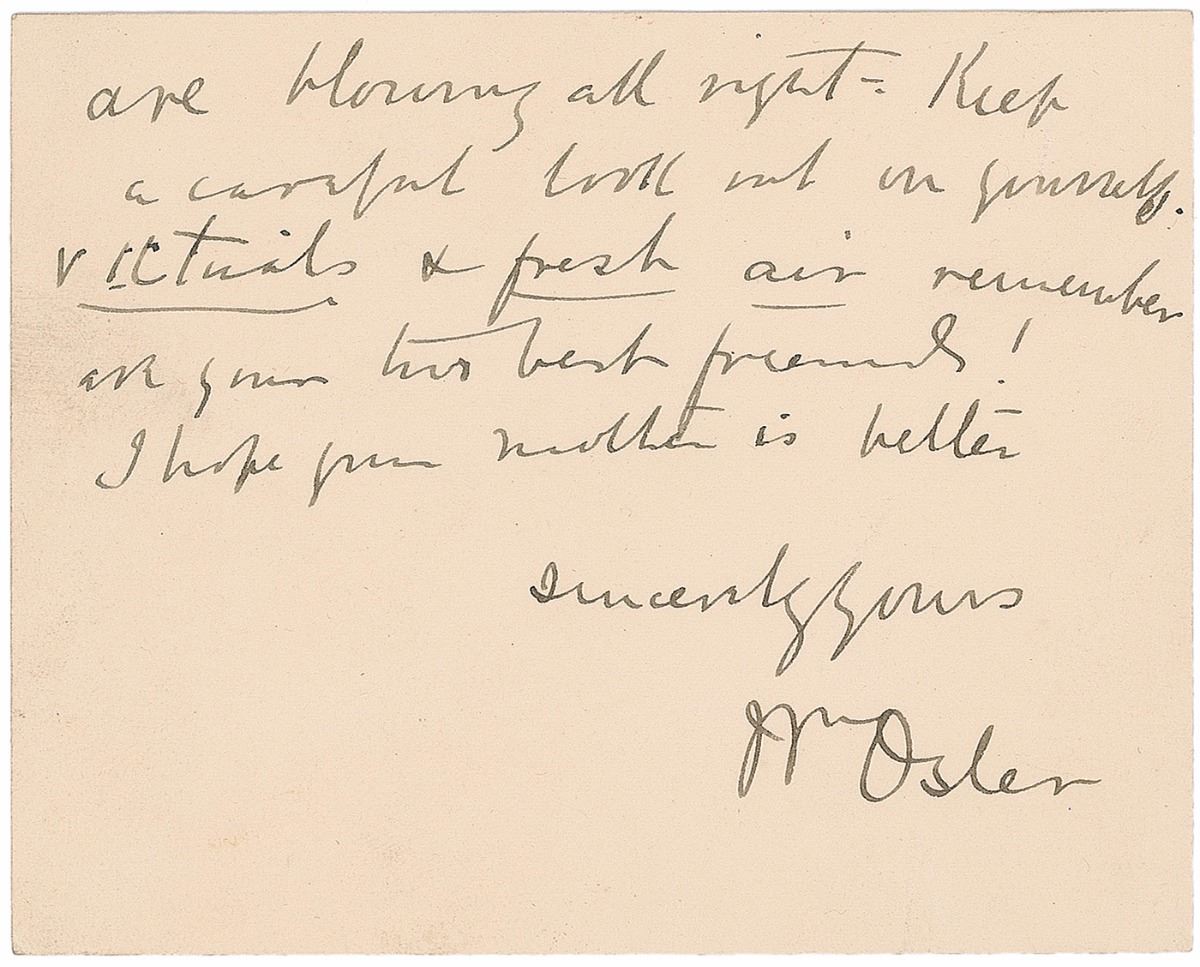 are blowing all right = Keep
a careful look out on yourself.
Victuals & fresh air remember
are your two best friends!
I hope your mother is better
Sincerely yours
Wm Osler